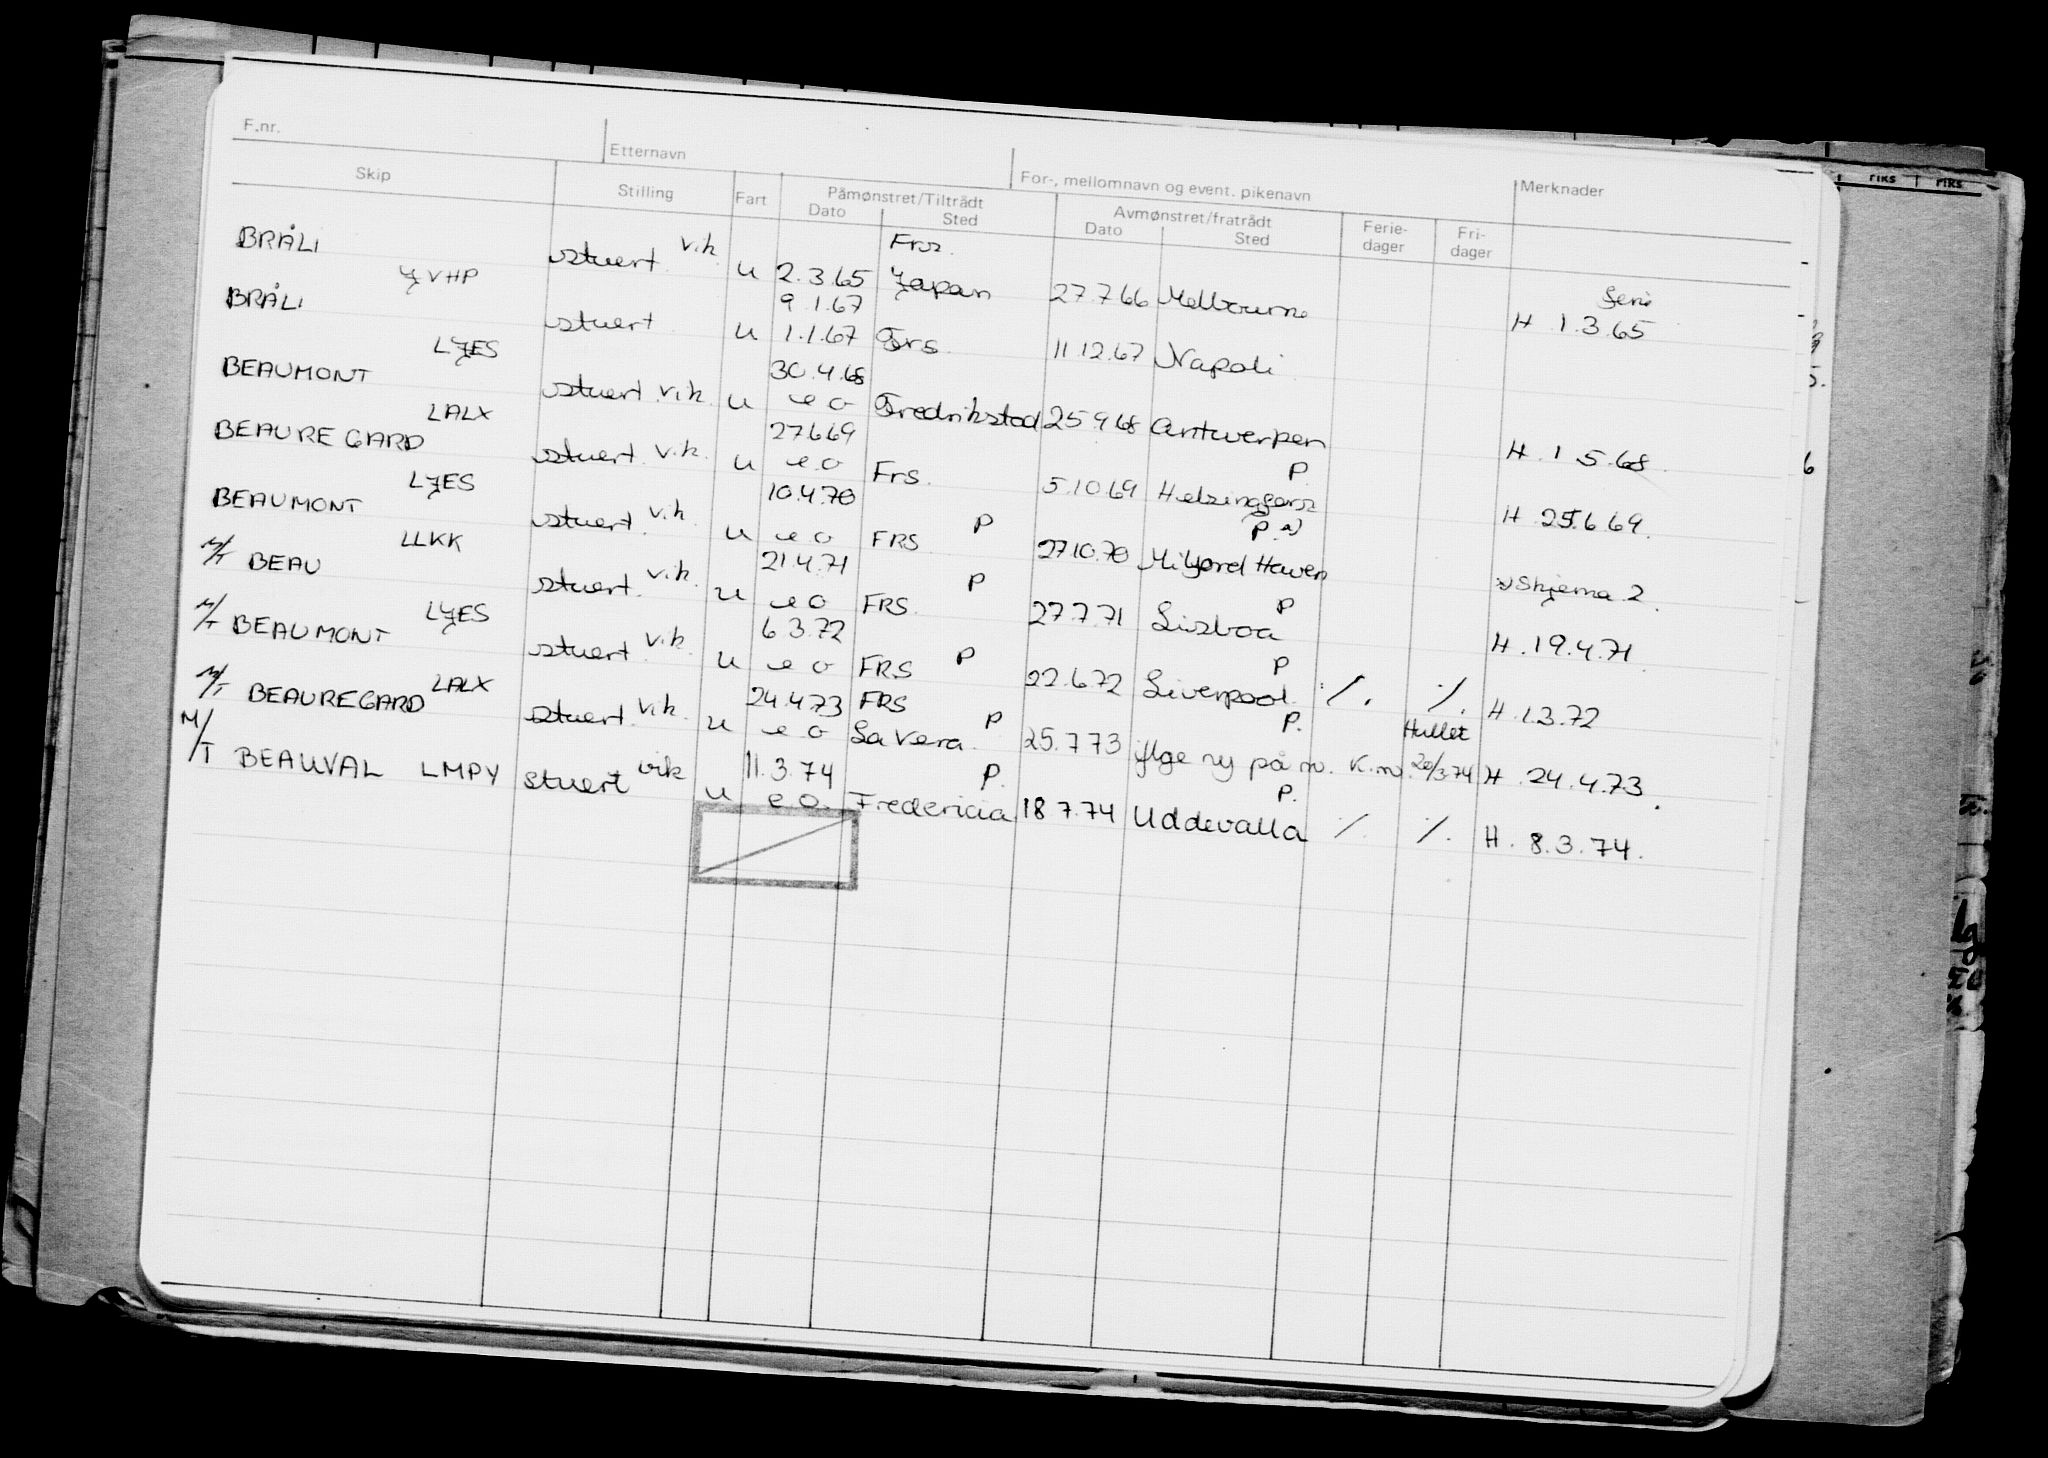 F.nr. Etternavn For-, mellomnavn og event. pikenavn
Skip Stilling Fart Påmønstret/Tiltrådt Avmønstret/fratrådt Ferie-dager Fri-dager Merknader
Dato Sted Dato Sted
BRÅLI stuert vik. u 2.3.65 Frs. Japan 27.7.66 Melbourne Ferie H 1.3.65
JVHP 9.1.67
BRÅLI stuert u 1.1.67 Frs. 11.12.67 Napoli
LJES 30.4.68
BEAUMONT stuert vik. u e o Fredrikstad 25.9.68 Antwerpen H. 1.5.68.
LALX 27.6.69
BEAUREGARD stuert vik. u e o Frs. 5.10.69 P. Helsingfors H 25.6.69.
LJES 10.4.70
BEAUMONT stuert vik. u e o FRS. P 27.10.70 Milford Haven Skjema 2.
LLKK 21.4.71
M/T BEAU stuert vik. u e o FRS. P 27.7.71 P Lisboa H. 19.4.71.
LJES 6.3.72
M/T BEAUMONT stuert vik. u e o FRS P 22.6.72 P Liverpool. ./. ./. H 1.3.72
LALX 24.4.73 FRS
M/T BEAUREGARD stuert vik. u e o La Vera. P 25.7.73 P. iflge ny på m. K.m. Hullet 20/3.74 H. 24.4.73.
M/T BEAUVAL LMPY stuert vik u 11.3.74 e.o. P. Fredericia 18.7.74 P. Uddevalla ./. ./. H. 8.3.74.